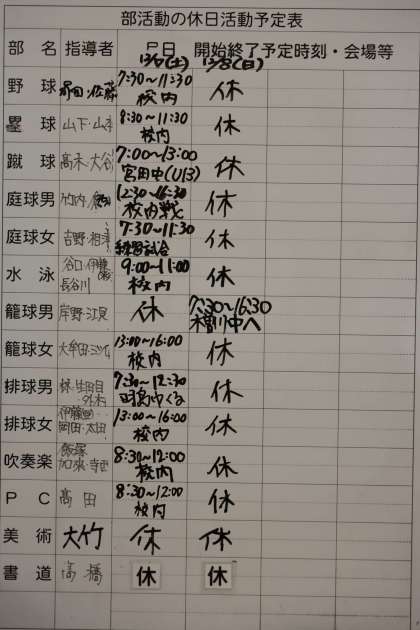 部活動の休日活動予定表
部 名 指導者 月日 開始終了予定時刻・会場等
12/7(土) 12/8(日)
野 球 7:30~11:30 休
校内
塁 球 山下・山本 8:30~11:30 休
校内
蹴 球 高木・大谷 7:00~13:00 休
宮田中(U13)
庭球男 竹内 12:30~16:30 休
校内戦
庭球女 吉野・相澤 7:30~11:30 休
練習試合
水 泳 谷口・伊藤 9:00~11:00 休
長谷川 校内
籠球男 岸野・江見 休 7:30~16:30
木曽川中へ
籠球女 大牟田・三ツ石 13:00~16:00 休
校内
排球男 林・生田目 7:30~12:30 休
・外村
排球女 伊藤 13:00~16:00 休
岡田・太田 校内
吹奏楽 飯塚 8:30~12:00 休
加来・寺西 校内
P C 高田 8:30~12:00 休
校内
美 術 大竹 休 休
書 道 高橋 休 休